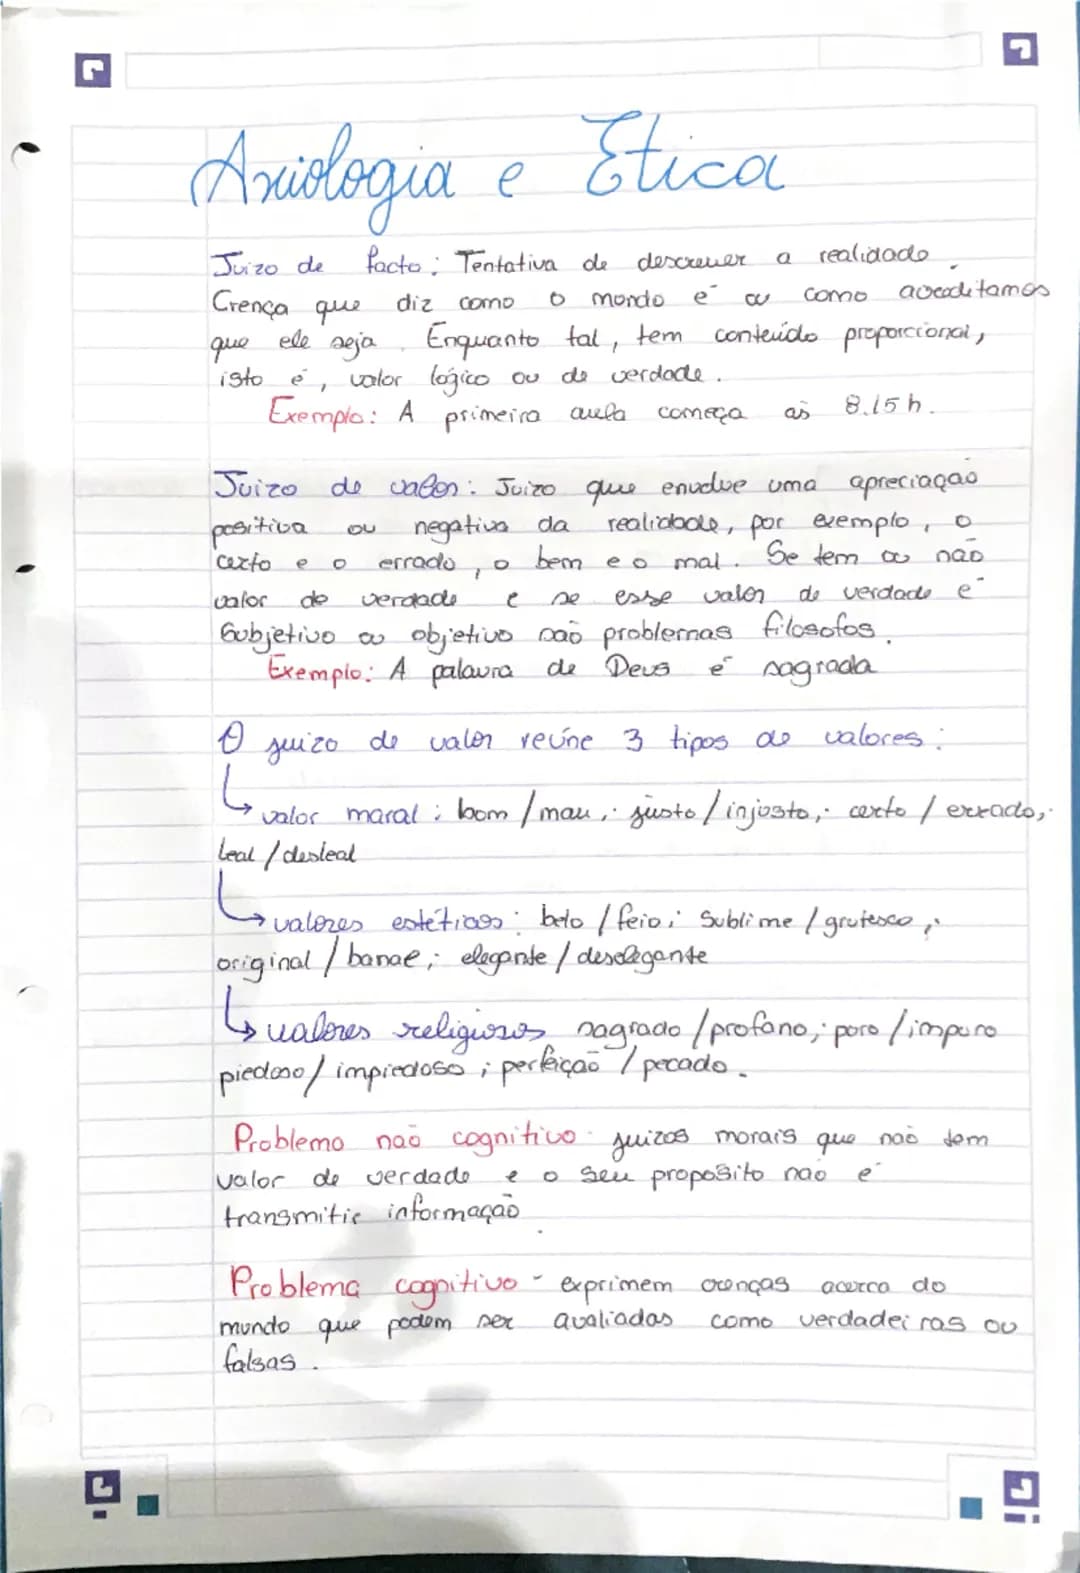 Axiologia e Ética
Juizo de facto: Tentativa de descrever a realidade.
Crença que diz como o mundo é ou como acreditamos
que ele seja. Enquanto tal, tem conteúdo proporcional,
isto é, valor lógico ou de verdade.
Exemplo: A primeira aula começa às 8.15h.
Juizo de valor: Juizo que envolve uma apreciação
positiva ou negativa da realidade, por exemplo, o
certo e o errado, o bem e o mal. Se tem ou não
valor de verdade e se esse valor de verdade é
Subjetivo ou objetivo são problemas filosofos.
Exemplo: A palavra de Deus é sagrada
O juizo de valor reúne 3 tipos de valores:
↳ valor moral: bom/mau; justo/injusto; certo/errado;
leal/desleal
↳ valores estéticos: belo/feio; Sublime/grutesco;
original/banal; elegante/deselegante
↳ valores religiosos sagrado/profano; puro/impuro
piedoso/impiedoso; perfeição/pecado.
Problema não cognitivo - juizos morais que não tem
valor de verdade e o seu proposito não é
transmitir informação.
Problema cognitivo - exprimem crenças acerca do
mundo que podem ser avaliadas como verdadeiras ou
falsas.